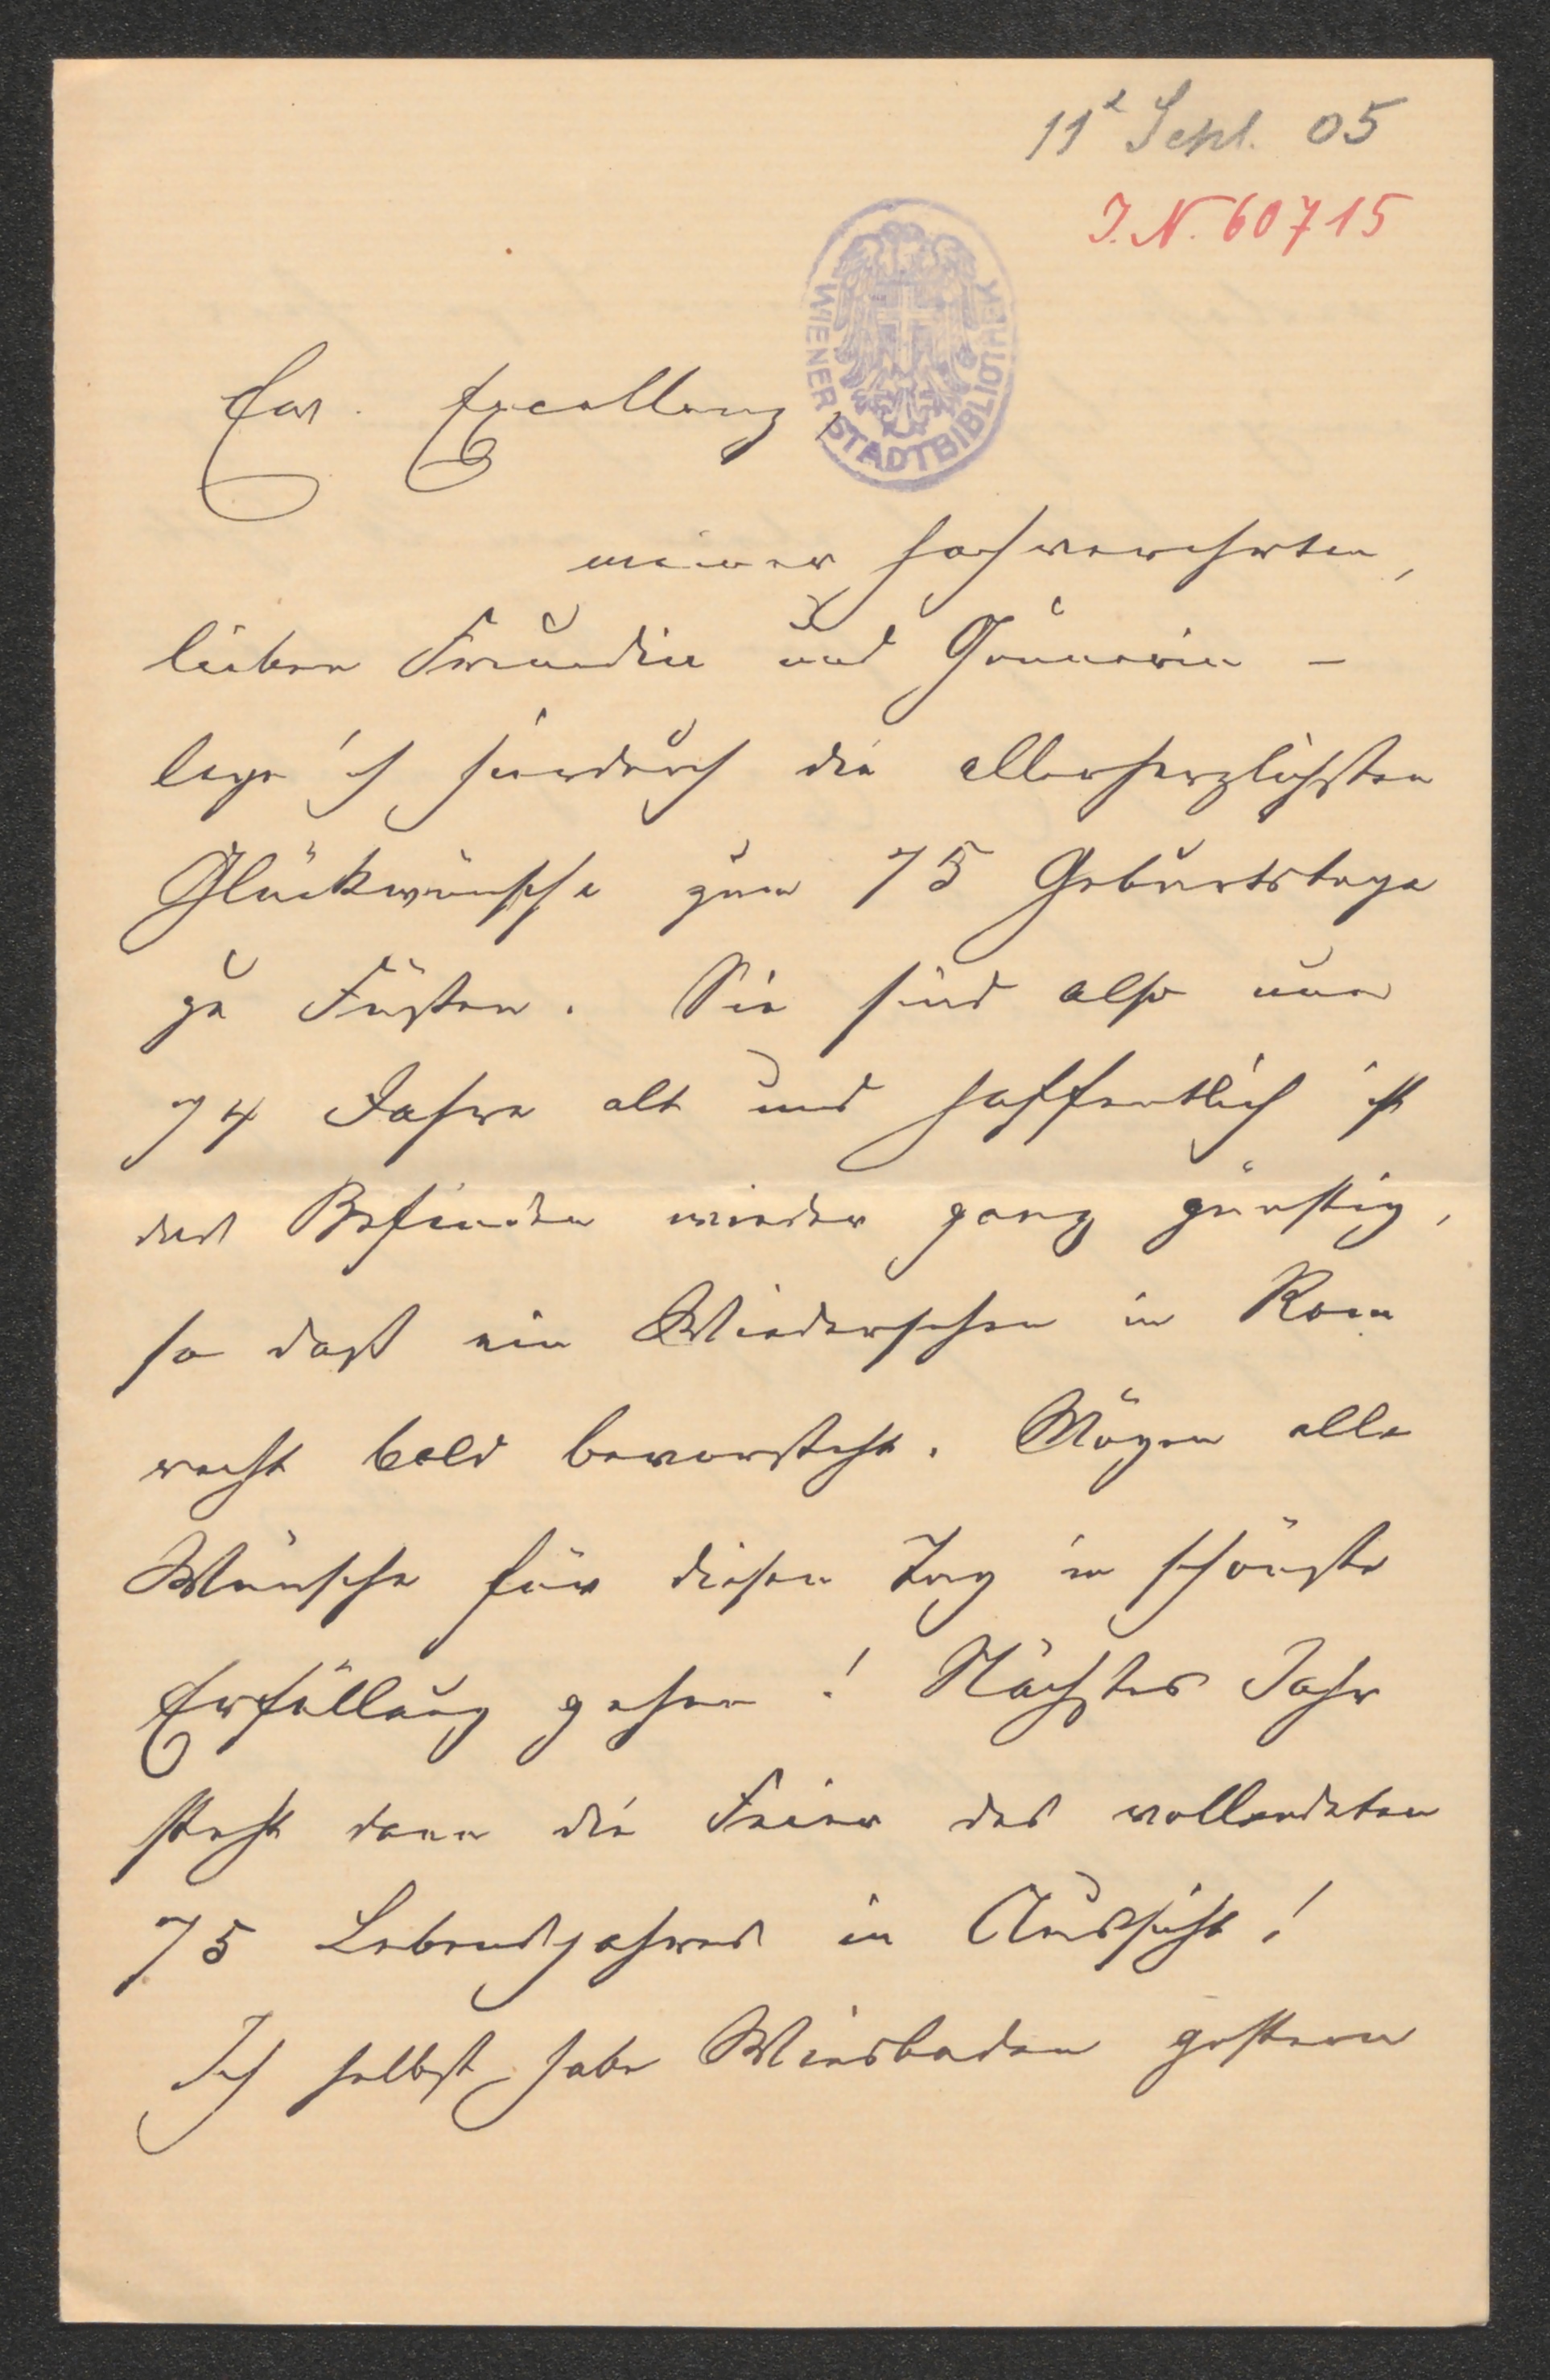 11t Sept. 05
J.N. 60715
WIENER STADTBIBLIOTHEK
Ew. Excellenz,
meiner hochverehrten,
lieben Freundin und Gönnerin –
lege ich hierdurch die allerherzlichsten
Glückwünsche zum 75 Geburtstage
zu Füßen. Sie sind also nun
74 Jahre alt und hoffentlich ist
das Befinden wieder ganz günstig,
so daß ein Wiedersehen in Rom
recht bald bevorsteht. Mögen alle
Wünsche für diesen Tag in schönste
Erfüllung gehen! Nächstes Jahr
steht dann die Feier des vollendeten
75 Lebensjahres in Aussicht!
Ich selbst habe Wiesbaden gestern